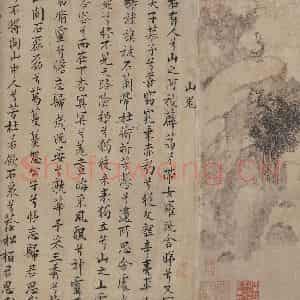 山鬼
若有人兮山之阿被薜荔兮帶女蘿既含睇兮又宜
子慕予兮善窈窕乘赤豹兮從文貍辛夷車
旗被石蘭兮帶杜衡折芳馨兮遺所思余處
兮終不見天路險難兮獨後來表獨立兮山之上
容容兮而在下杳冥冥兮羌晝晦東風飄兮神靈
留靈脩兮憺忘歸歲既晏兮孰華予采三秀兮
山間石磊磊兮葛蔓蔓怨公子兮悵忘歸君思
不得閒山中人兮芳杜若飲石泉兮蔭松柏君思
Shufawang.cn